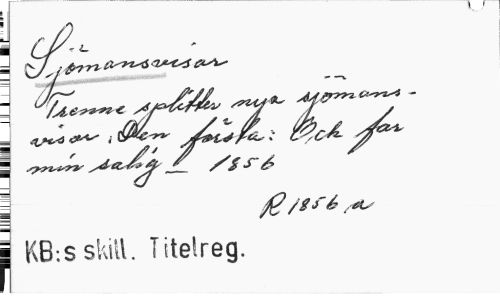 Sjömansvisor
Trenne splitter nya sjömans-
visor. Den första: Och far
min salig _ 1856
R 1856 a
KB:s skill. Titelreg.